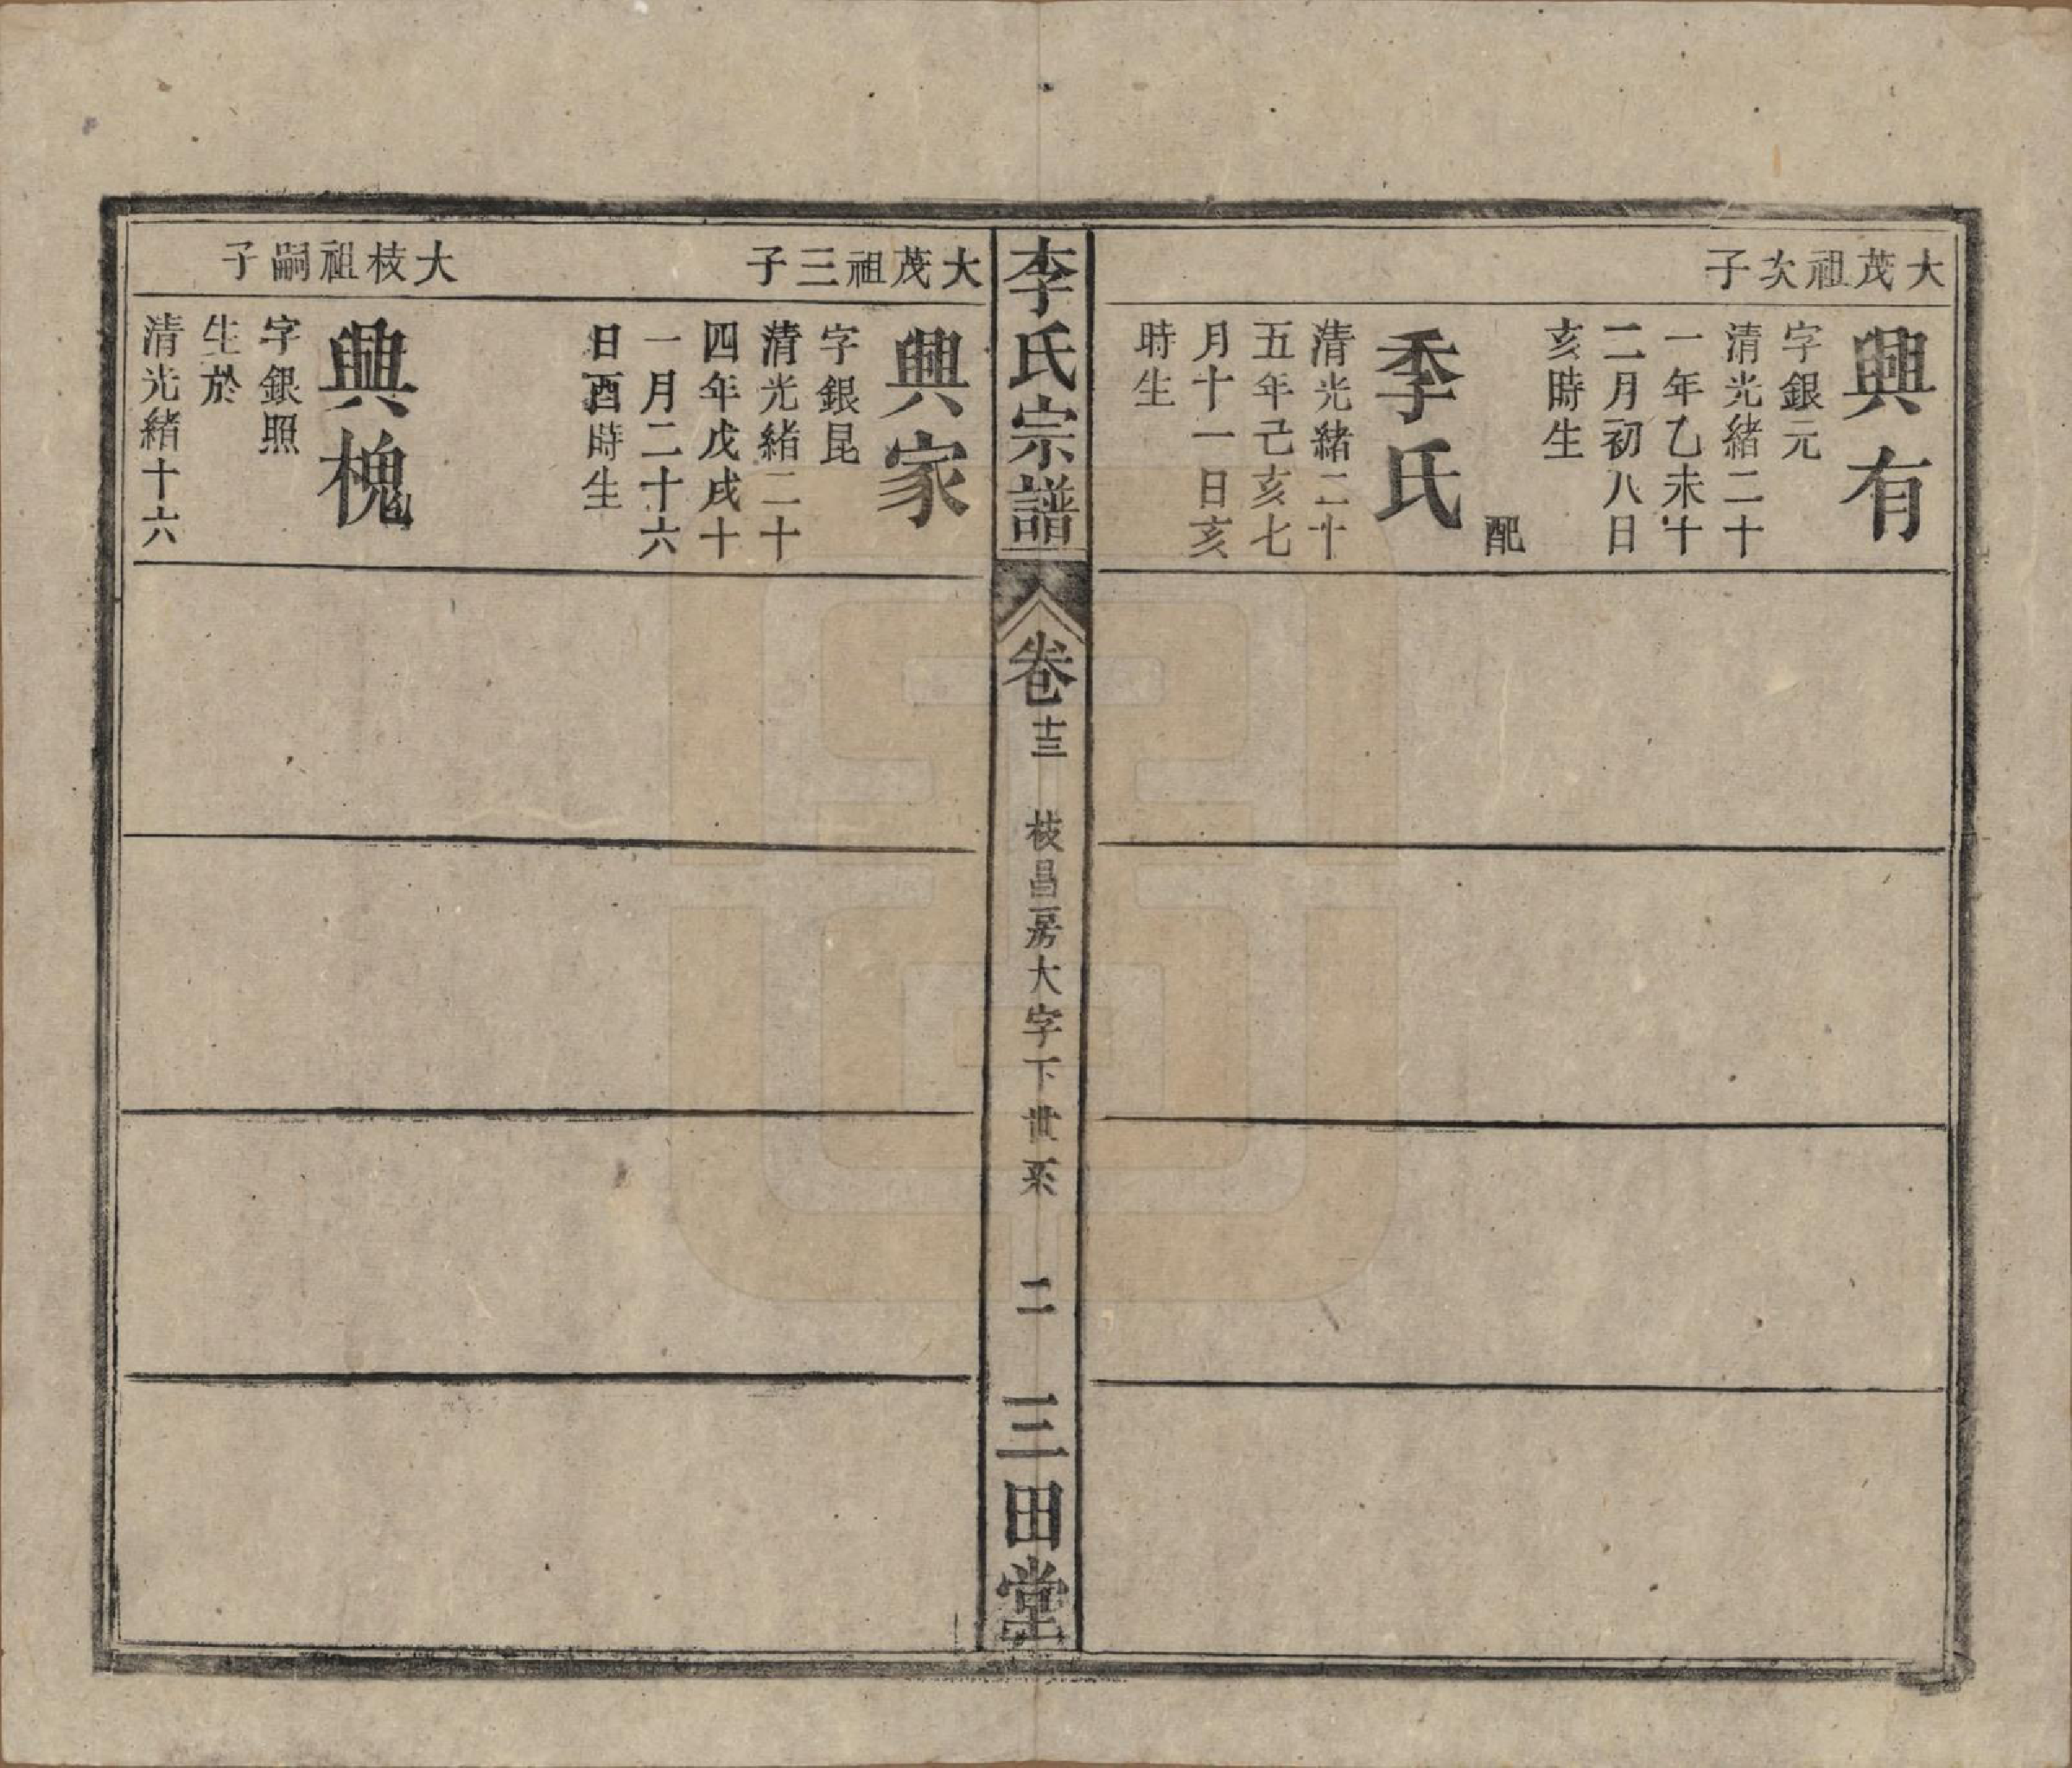 大茂祖次子
興有
字銀元
清光緒二十
一年乙未十
二月初八日
亥時生
配
季氏
清光緒二十
五年己亥七
月十一日亥
時生
李氏宗譜
卷十三
枝昌房大字下世系
二
三田堂
大茂祖三子
興家
字銀昆
清光緒二十
四年戊戌十
一月二十六
日酉時生
大枝祖嗣子
興槐
字銀照
生於
清光緒十六